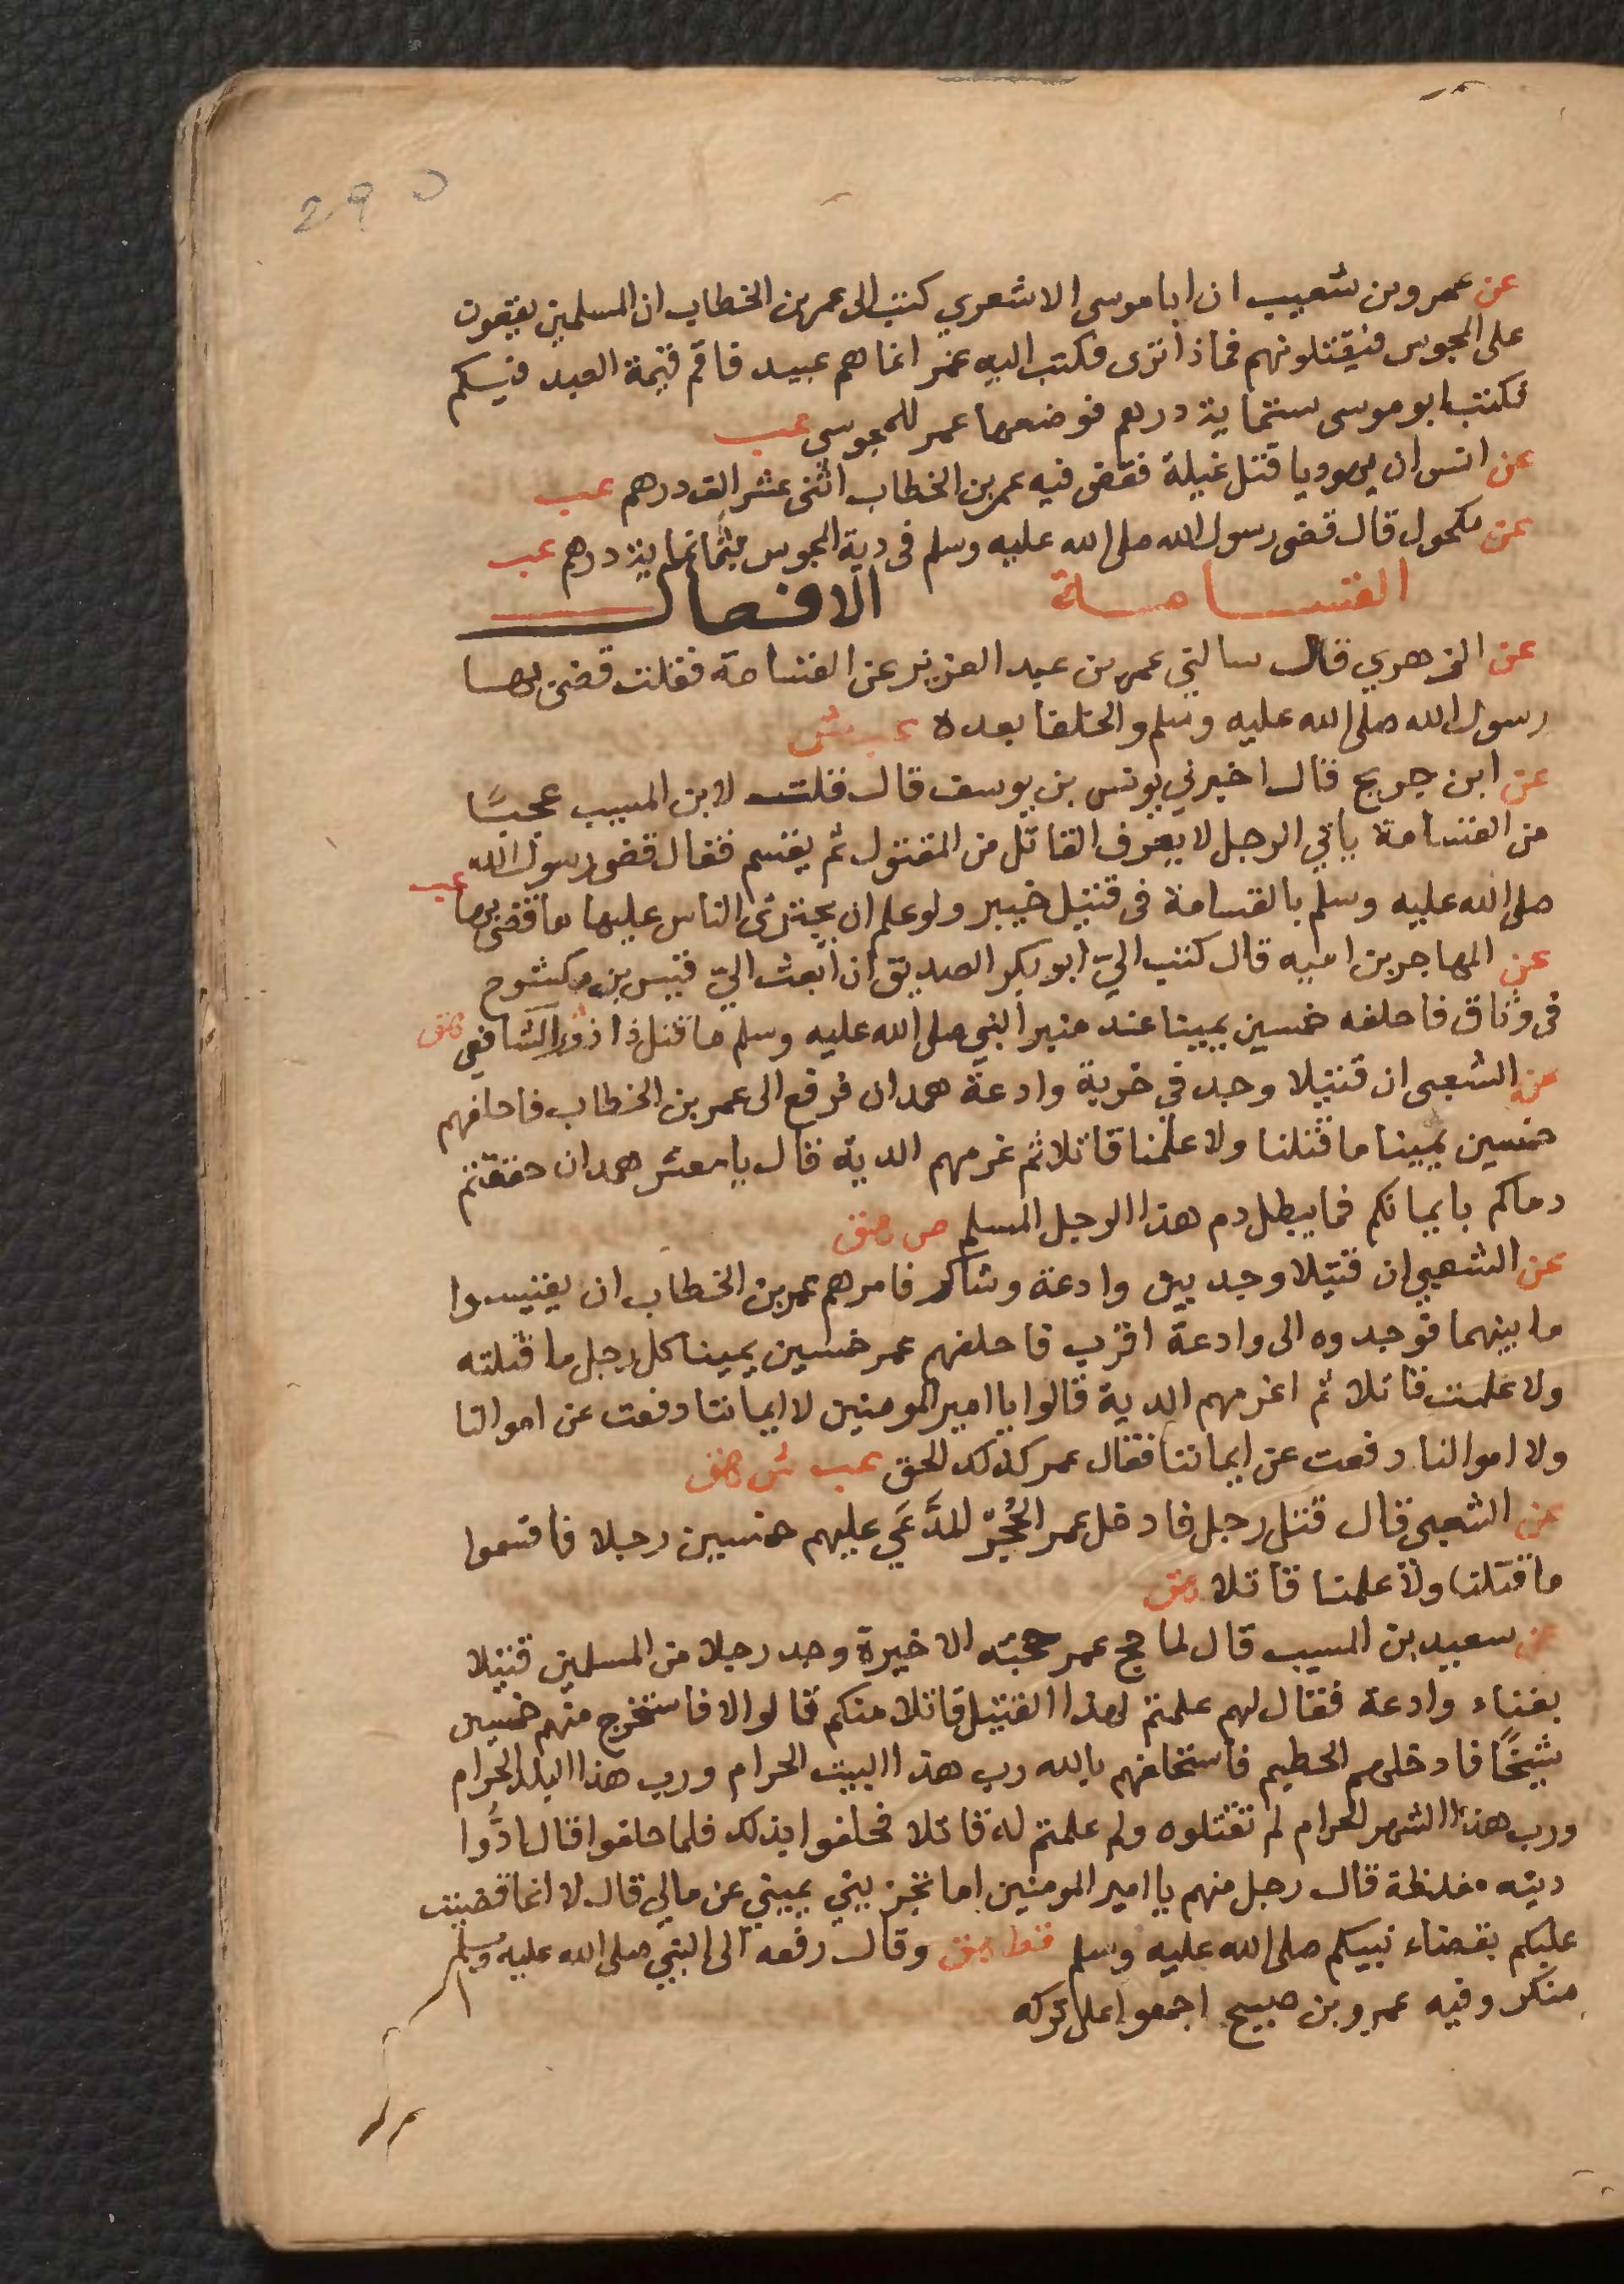 295
عن عمرو بن شعيب ان ابا موسى الاشعري كتب الى عمر بن الخطاب ان المسلمين يقعون
على المجوس فيقتلونهم فماذا ترى فكتب اليه عمر انما هم عبيد فاقم قيمة العبد فيكم
فكتب ابو موسى ستماية درهم فوضعها عمر للمجوسي عب
عن انس ان يهوديا قتل غيلة فقضى فيه عمر بن الخطاب اثنى عشر الف درهم عب
عن مكحول قال قضى رسول الله صلى الله عليه وسلم في دية المجوس بثمانماية درهم عب
القسامة الافعال
عن الزهري قال سالني عمر بن عبد العزيز عن القسامة فقلت قضى بها
رسول الله صلى الله عليه وسلم والخلفا بعده عب ش
عن ابن جريج قال اخبرني يونس بن يوسف قال قلت لابن المسيب عجبًا
من القسامة ياتي الرجل لا يعرف القاتل من المقتول ثم يقسم فقال قضى رسول الله
صلى الله عليه وسلم بالقسامة في قتيل خيبر ولو علم ان يجترى الناس عليها ما قضى بها عب
عن المهاجر بن اميه قال كتب اليّ ابو بكر الصديق ان ابعث اليّ قيس بن مكشوح
في وثاق فاحلفه خمسين يمينا عند منبر النبي صلى الله عليه وسلم ما قتل ذا ذوي الشافعي هق
عن الشعبي ان قتيلا وجد في خربة وادعة همدان فرفع الى عمر بن الخطاب فاحلفهم
خمسين يمينا ما قتلنا ولا علمنا قاتلا ثم غرمهم الدية قال يا معشر همدان حقنتم
دماكم بايمانكم فما يبطل دم هذا الرجل المسلم ص هق
عن الشعبي ان قتيلا وجد بين وادعة وشاكر فامرهم عمر بن الخطاب ان يقيسوا
ما بينهما فوجدوه الى وادعة اقرب فاحلفهم عمر خمسين يمينا كل رجل ما قتلته
ولا علمت قاتلا ثم اغرمهم الدية قالوا يا امير المومنين لا ايماننا دفعت عن اموالنا
ولا اموالنا دفعت عن ايماننا فقال عمر كذلك الحق عب ش هق
عن الشعبي قال قتل رجل فادخل عمر الحُجِرّ المدَّعَي عليهم خمسين رجلا فاقسموا
ما قتلنا ولا علمنا قاتلا هق
عن سعيد بن المسيب قال لما حج عمر حجته الاخيرة وجد رجلا من المسلمين قتيلا
بفناء وادعة فقال لهم علمتم لهذا القتيل قاتلا منكم قالوا لا فاستخرج منهم خمسين
شيخًا فادخلهم الحطيم فاستحلفهم بالله رب هذا البيت الحرام ورب هذا البلد الحرام
ورب هذا الشهر الحرام لم تقتلوه ولم علمتم له قاتلا فحلفوا بذلك فلما حلفوا قال ادُّوا
ديته مغلظة قال رجل منهم يا امير المومنين اما تجزيني يميني عن مالي قال لا انما قضيت
عليكم بقضاء نبيكم صلى الله عليه وسلم قط هق وقال رفعه الى النبي صلى الله عليه وسلم
منكر وفيه عمرو بن صبيح اجمعوا على تركه